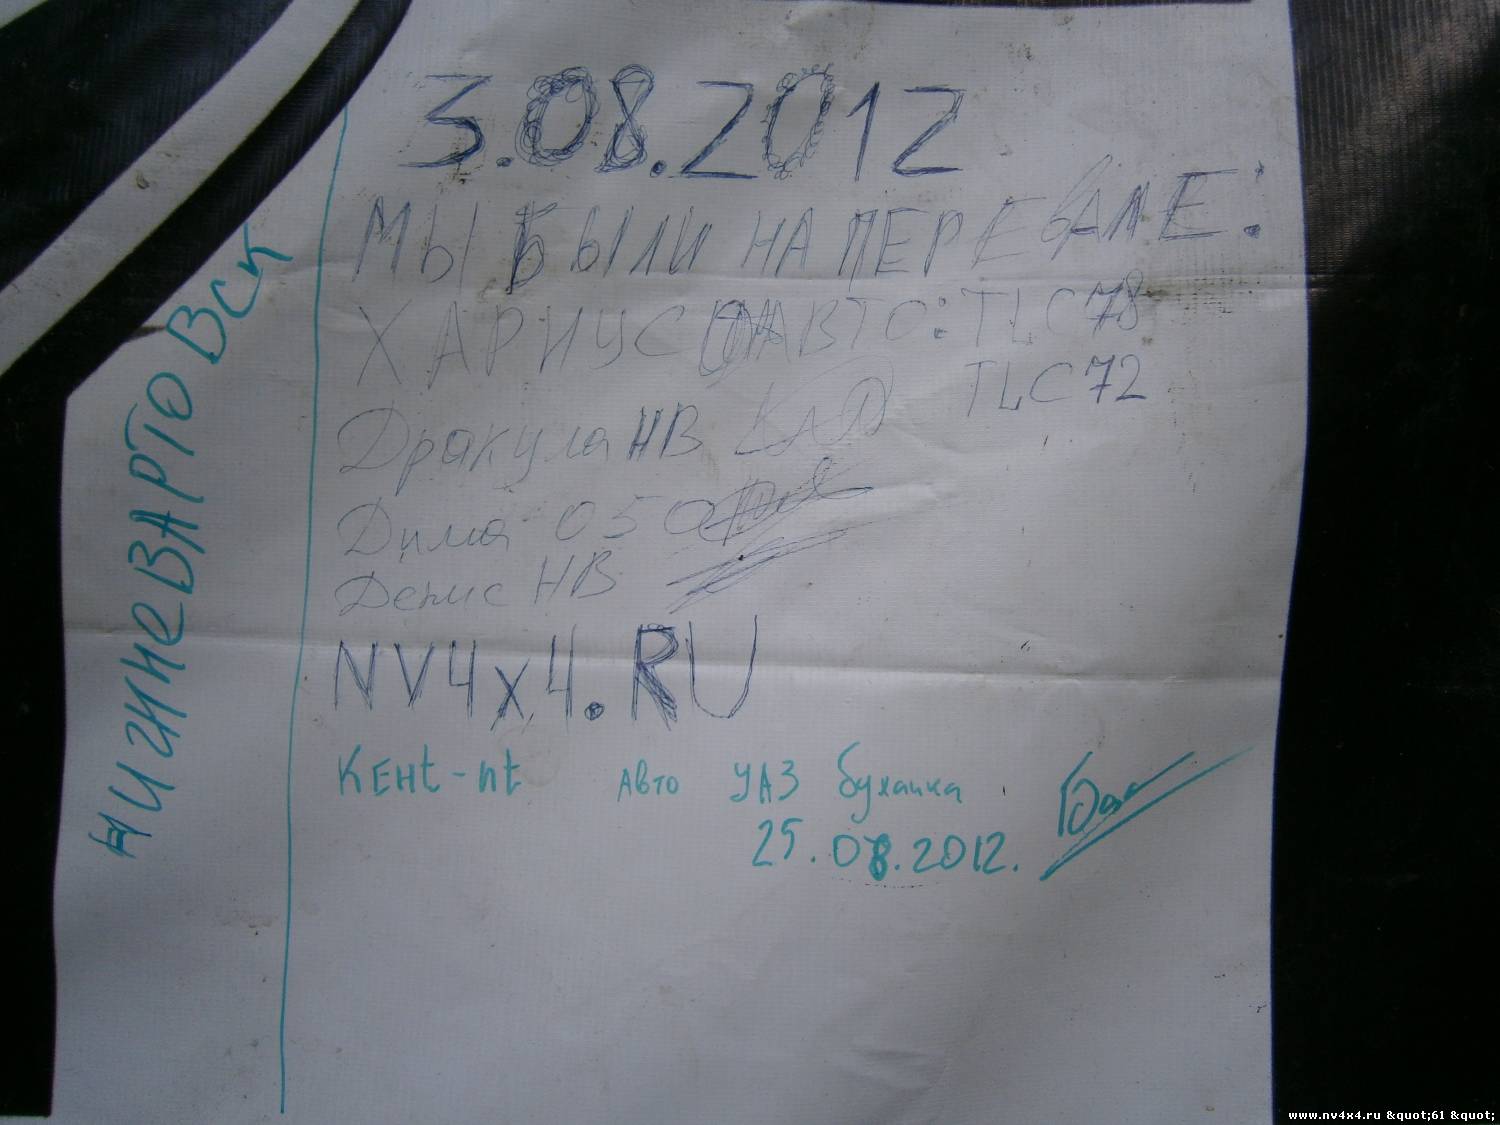 3.08.2012
МЫ БЫЛИ НА ПЕРЕВАЛЕ:
ХАРИУС АВТО: TLC78
TLC72
Дракула НВ
Дима 050
Денис НВ
NV4x4.RU
КЕНt-nt Авто УАЗ буханка
25.08.2012.
НИЖНЕВАРТОВСК
www.nv4x4.ru &quot;61 &quot;